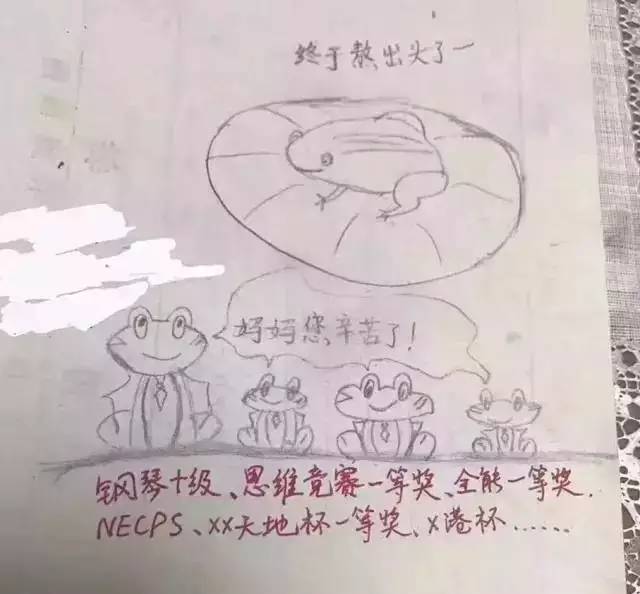 终于熬出头了一
妈妈您辛苦了！
钢琴十级、思维竞赛一等奖、全能一等奖、
NECPS、xx天地杯一等奖、x港杯......